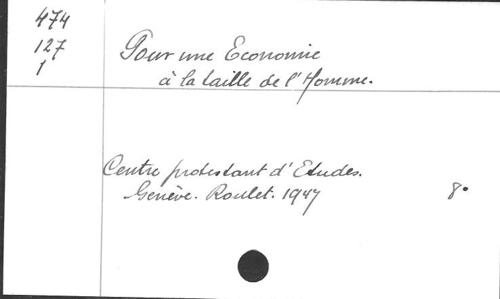 474
127
1
Pour une Economie
à la taille de l'Homme.
Centre protestant d'Etudes.
Genève. Roulet. 1947
8°